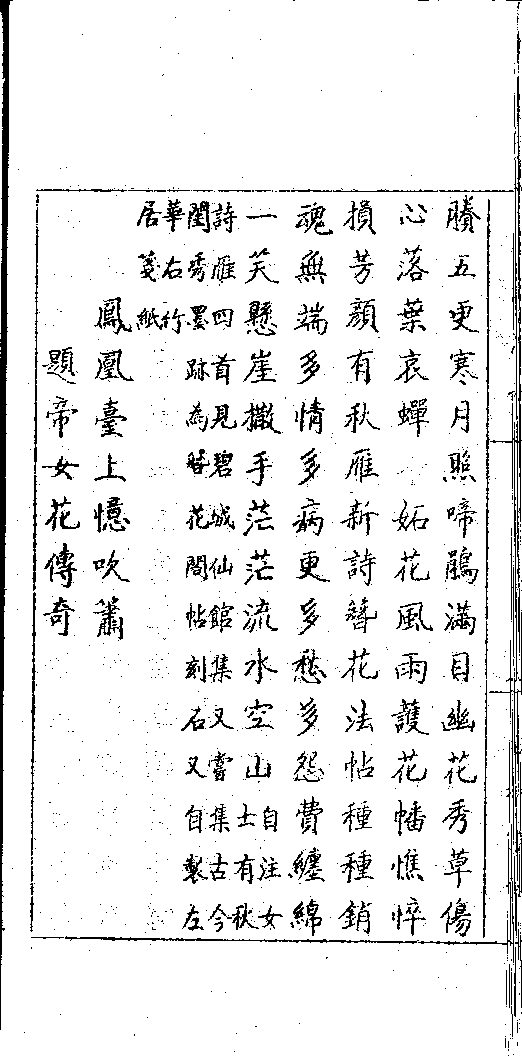 賸五更寒月照啼鵑滿目幽花秀草傷
心落葉哀蟬　妬花風雨護花幡憔悴
損芳顏有秋雁新詩簪花法帖種種銷
魂無端多情多病更多愁多怨費纏綿
一笑懸崖撒手茫茫流水空山自注女
士有秋
詩雁四首見碧城仙館集又嘗集古今
閨秀墨跡為簪花閣帖刻石又自製左
華右竹
居箋紙
鳳凰臺上憶吹簫
題帝女花傳奇